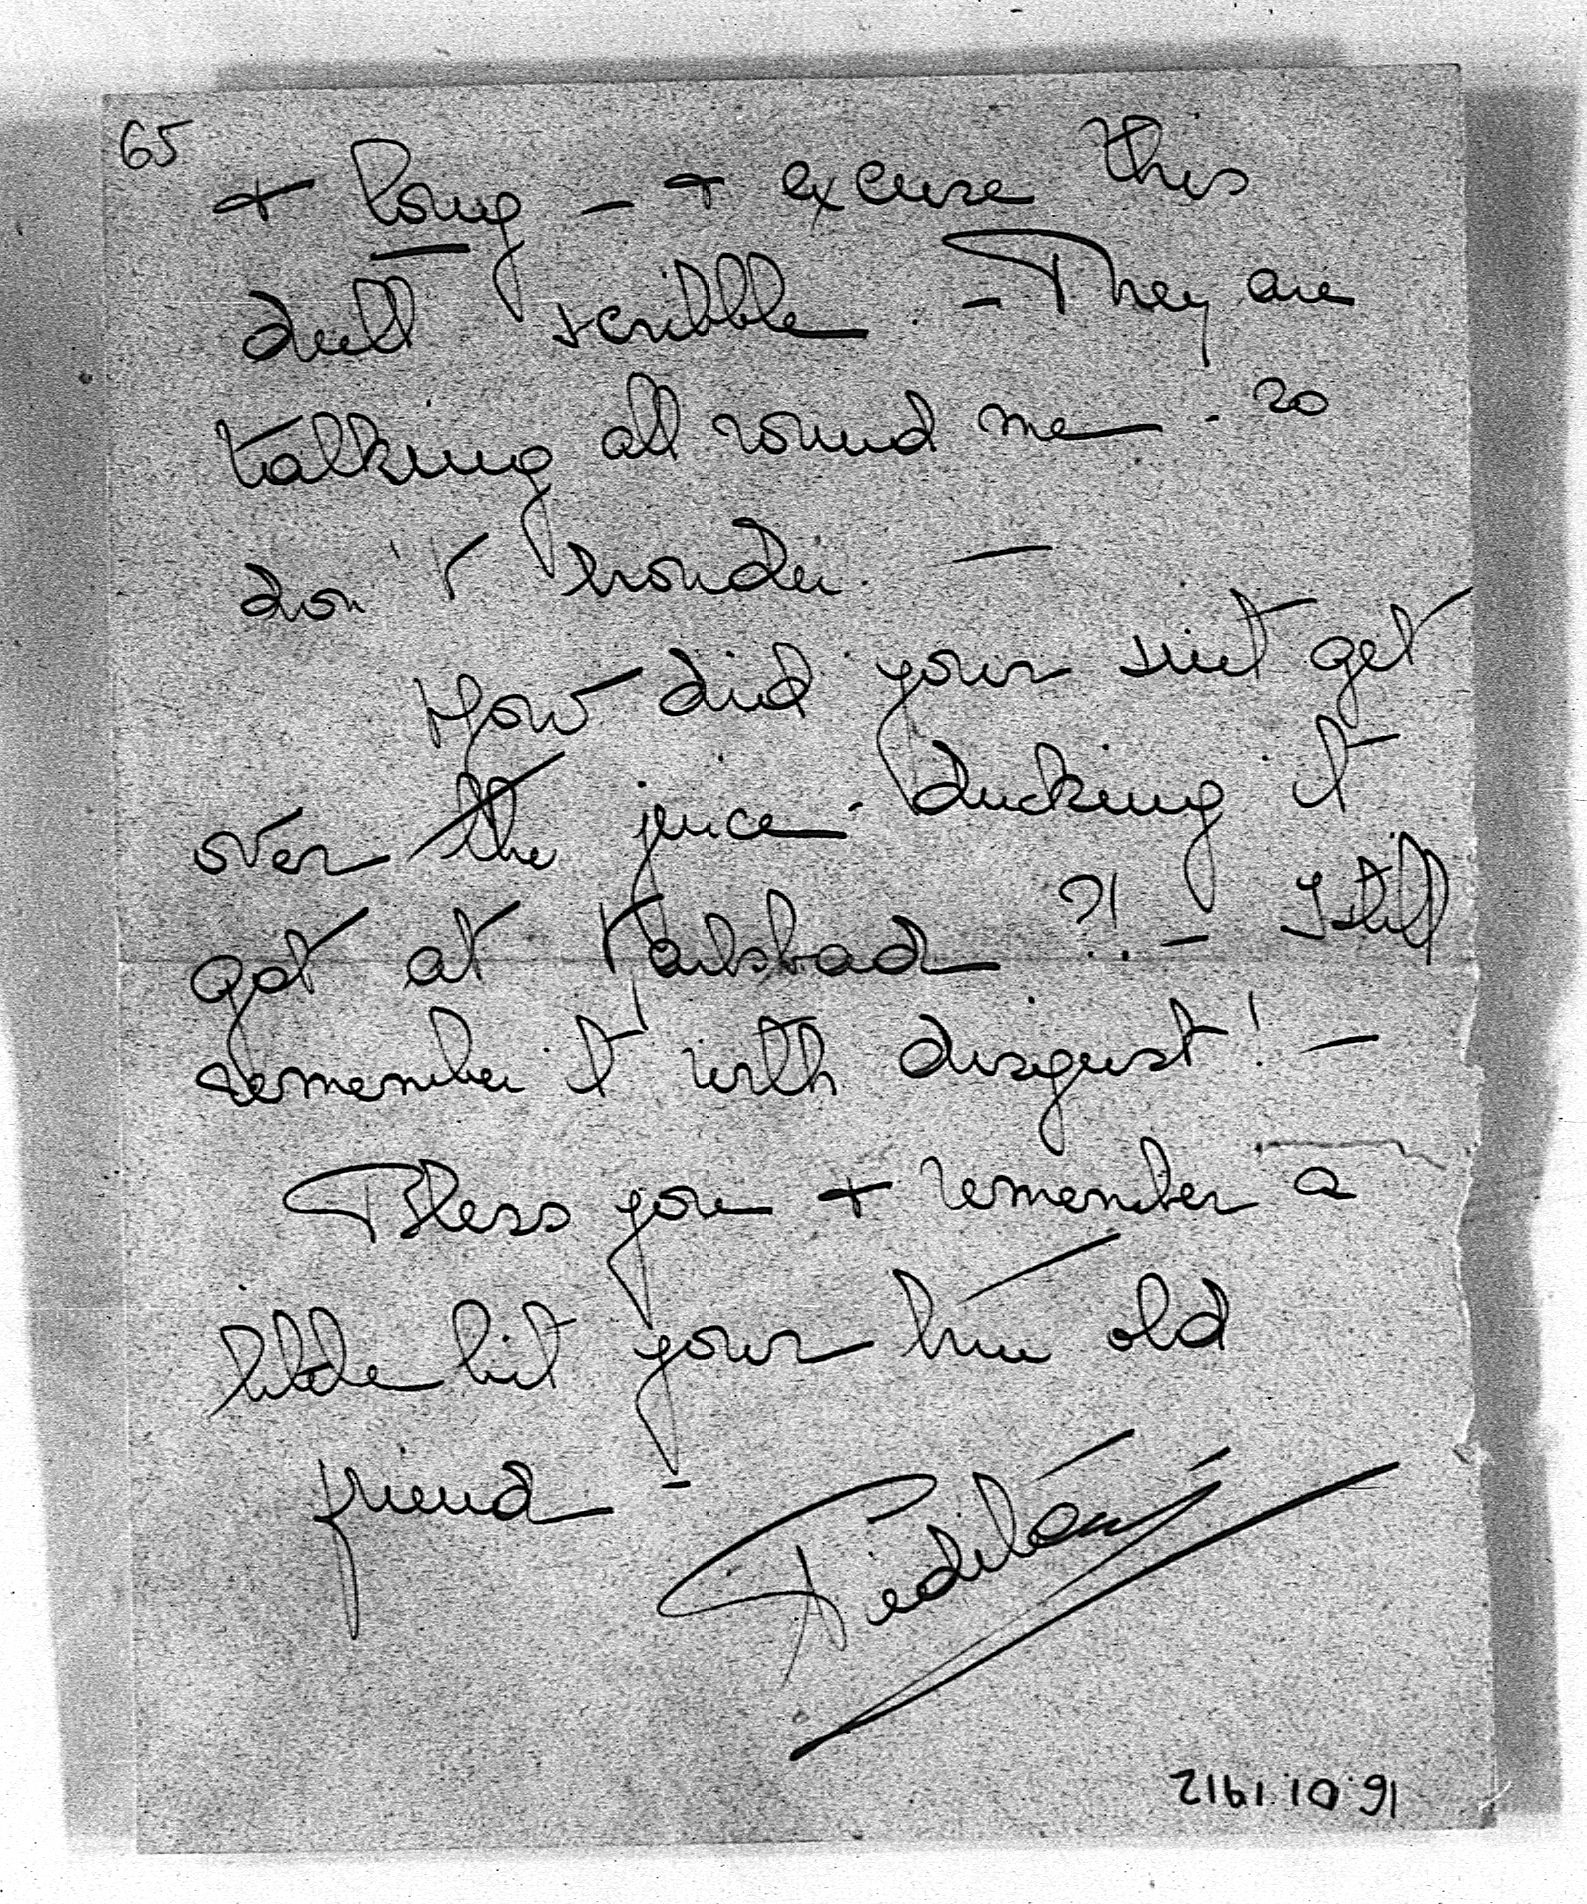 65
+ long - + excuse this
dull scribble. - They are
talking all round me. so
don't wonder. -
How did your suit get
over the juice. ducking it
got at Karlsbad ?! - I still
remember it with disgust! -
Bless you + remember a
little bit your true old
friend -
16.01.1912